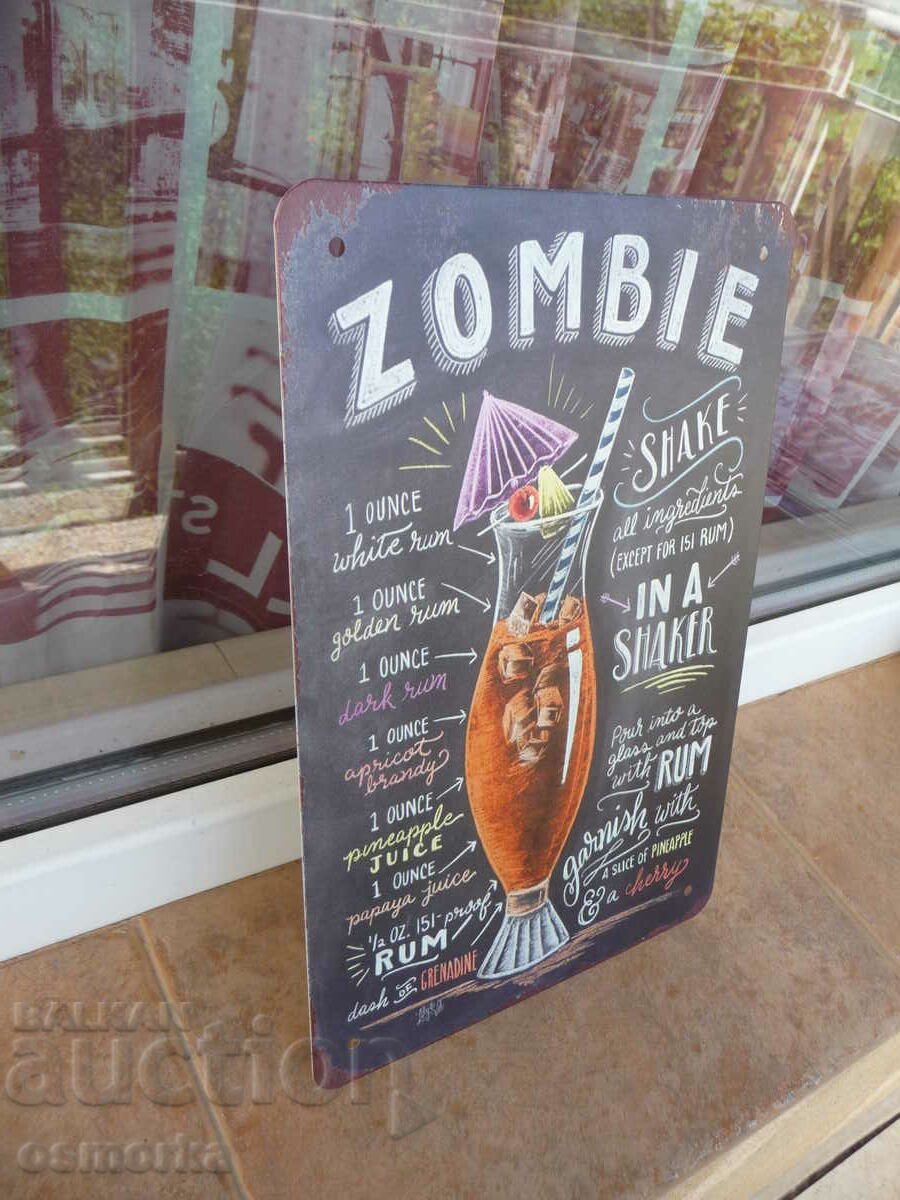 ZOMBIE
1 OUNCE
white rum
1 OUNCE
golden rum
1 OUNCE
dark rum
1 OUNCE
apricot
brandy
1 OUNCE
pineapple
JUICE
1 OUNCE
papaya juice
1/2 OZ. 151-proof
RUM
dash OF GRENADINE
SHAKE
all ingredients
(EXCEPT FOR 151 RUM)
IN A
SHAKER
Pour into a
glass and top
with RUM
garnish with
A SLICE OF PINEAPPLE
& a cherry
BALKAN
auction
osmorka